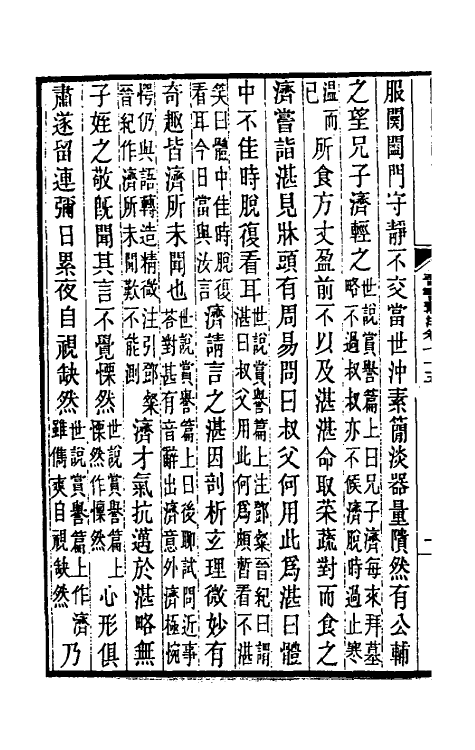 服闋闔門守靜不交當世沖素簡淡器量隤然有公輔
之望兄子濟輕之世說賞譽篇上曰兄子濟每來拜墓略不過叔叔亦不候濟脫時過止寒
温而已所食方丈盈前不以及湛湛命取菜蔬對而食之
濟嘗詣湛見牀頭有周易問曰叔父何用此為湛曰體
中不佳時脫復看耳世說賞譽篇上注鄧粲晉紀曰謂湛曰叔父用此何為頗暫看不湛
笑曰體中佳時脫復看耳今日當與汝言濟請言之湛因剖析玄理微妙有
奇趣皆濟所未聞也世說賞譽篇上曰後聊試問近事荅對甚有音辭出濟意外濟極惋
愕仍與語轉造精微注引鄧粲晉紀作濟所未聞歎不能測濟才氣抗邁於湛略無
子姪之敬旣聞其言不覺慄然世說賞譽篇上慄然作懍然心形俱
肅遂留連彌日累夜自視缺然世說賞譽篇上作濟雖儁爽自視缺然乃